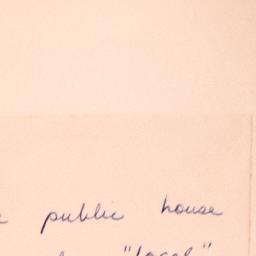 public house
"local"